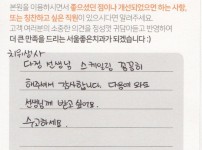 본원을 이용하시면서 좋으셨던 점이나 개선되었으면 하는 사항,
또는 칭찬하고 싶은 직원이 있으시다면 말해주세요.
고객 여러분의 소중한 의견을 정성껏 귀담아듣고 반영하여
더 큰 만족을 드리는 서울좋은치과가 되겠습니다 :)
치위생사
다정 선생님 스케일링 꼼꼼히
해주셔서 감사합니다. 다음에 와도
선생님께 받고 싶어요.
수고하세요